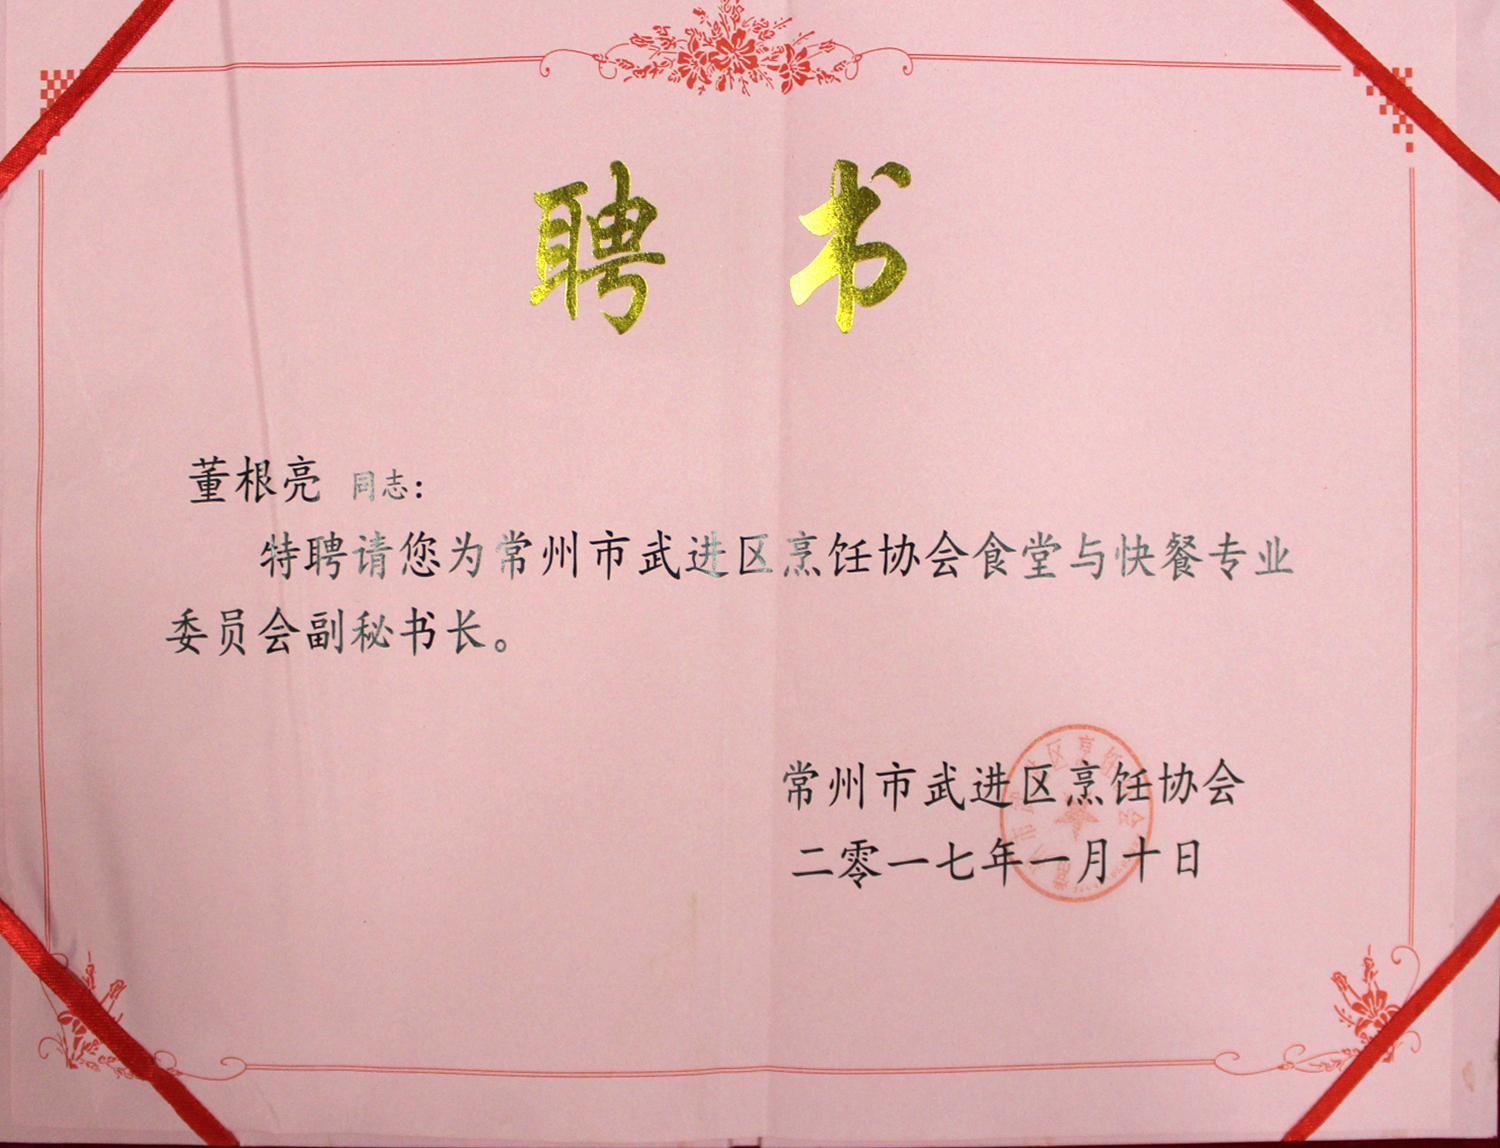 聘书
董根亮 同志：
特聘请您为常州市武进区烹饪协会食堂与快餐专业
委员会副秘书长。
常州市武进区烹饪协会
二零一七年一月十日